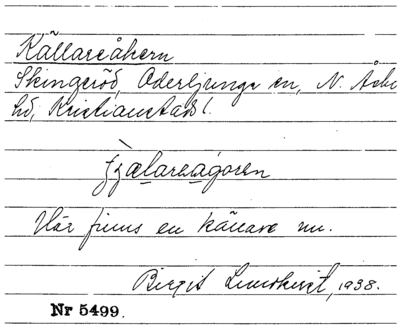 Källareåkern
Skingeröd, Oderljunga sn, N. Åsbo
hd, Kristianstads l.
çz̀ælareagoren
Här finns en källare nu.
Birgit Lundkvist, 1938.
Nr 5499.